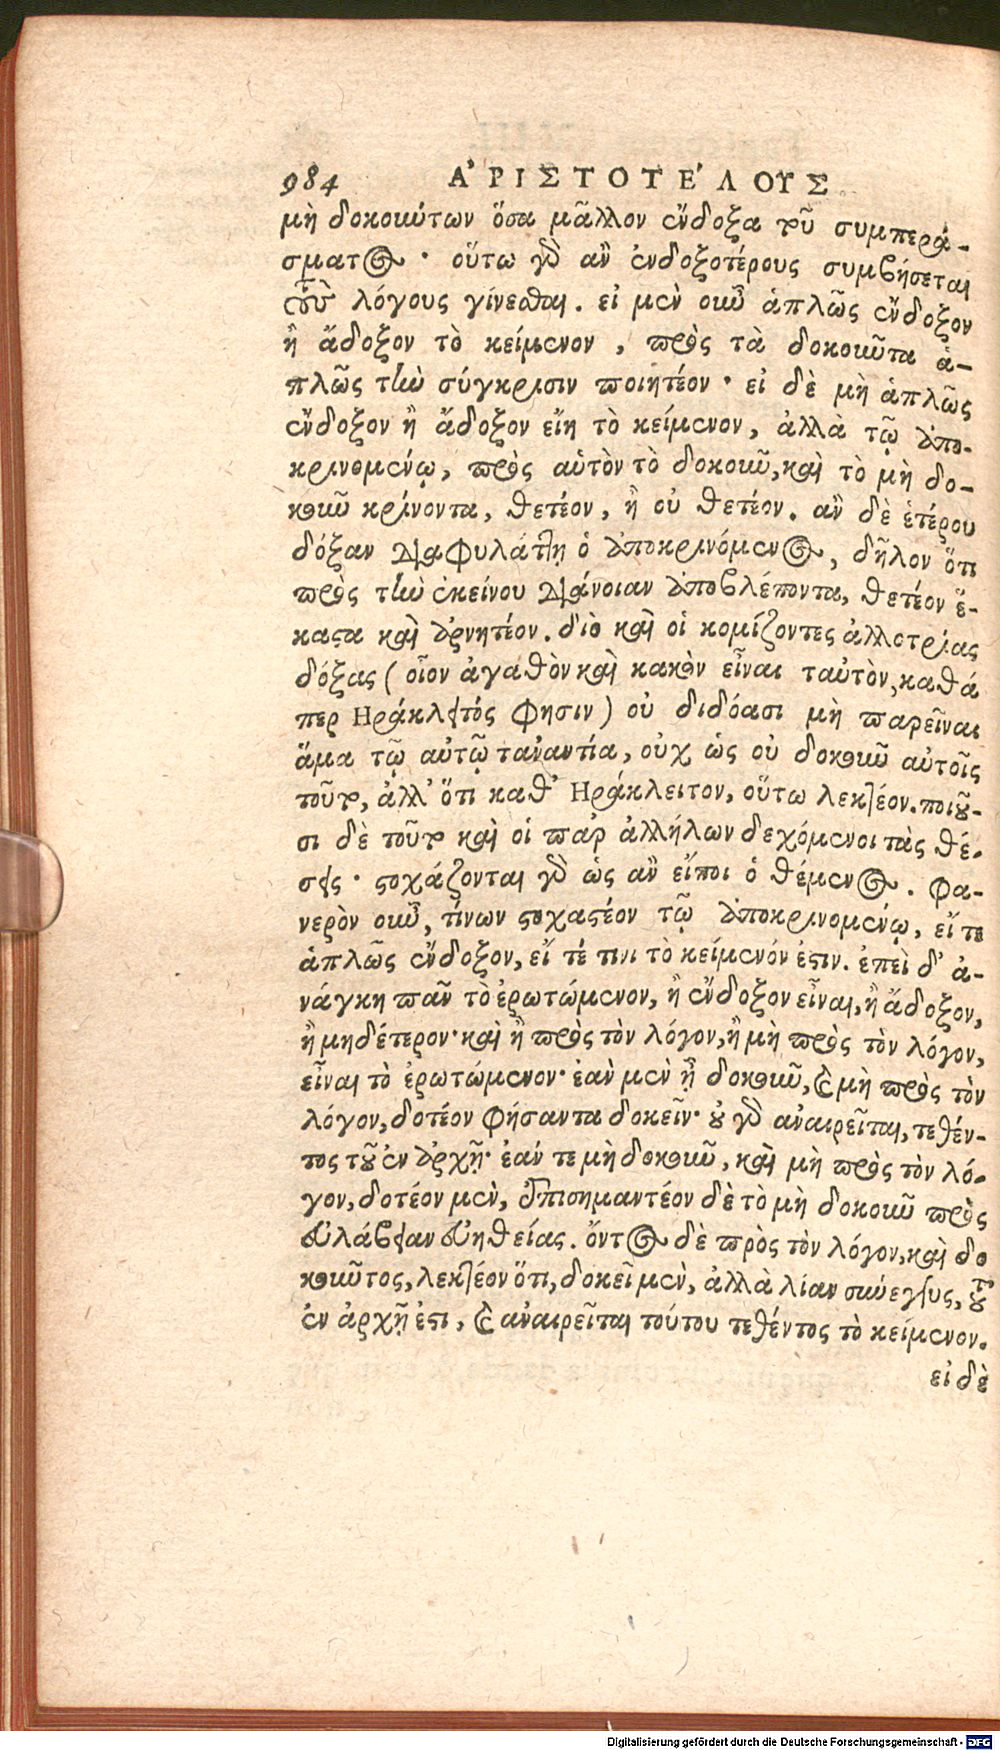 984 ἈΡΙΣΤΟΤΕ´ΛΟΥΣ
μὴ δοκούντων ὅσα μᾶλλον ἔνδοξα τοῦ συμπερά-
σματος · οὕτω γὰρ ἂν ἐνδοξοτέρους συμβήσεται
τοὺς λόγους γίνεσθαι. εἰ μὲν οὖν ἁπλῶς ἔνδοξον
ἢ ἄδοξον τὸ κείμενον , πρὸς τὰ δοκοῦντα ἁ-
πλῶς τὴν σύγκρισιν ποιητέον · εἰ δὲ μὴ ἁπλῶς
ἔνδοξον ἢ ἄδοξον εἴη τὸ κείμενον, ἀλλὰ τῷ ἀπο-
κρινομένῳ, πρὸς αὑτὸν τὸ δοκοῦν, καὶ τὸ μὴ δο-
κοῦν κρίνοντα, θετέον, ἢ οὐ θετέον. ἂν δὲ ἑτέρου
δόξαν διαφυλάττῃ ὁ ἀποκρινόμενος, δῆλον ὅτι
πρὸς τὴν ἐκείνου διάνοιαν ἀποβλέποντα, θετέον ἕ-
καστα καὶ ἀρνητέον. διὸ καὶ οἱ κομίζοντες ἀλλοτρίας
δόξας ( οἷον ἀγαθὸν καὶ κακὸν εἶναι ταὐτὸν, καθά
περ Ηράκλειτός φησιν) οὐ διδόασι μὴ παρεῖναι
ἅμα τῷ αὐτῷ τἀναντία, οὐχ ὡς οὐ δοκοῦν αὐτοῖς
τοῦτο, ἀλλ' ὅτι καθ' Ηράκλειτον, οὕτω λεκτέον. ποιοῦ-
σι δὲ τοῦτο καὶ οἱ παρ ἀλλήλων δεχόμενοι τὰς θέ-
σεις · στοχάζονται γὰρ ὡς ἂν εἴποι ὁ θέμενος. φα-
νερὸν οὖν, τίνων στοχαστέον τῷ ἀποκρινομένῳ, εἴ τε
ἁπλῶς ἔνδοξον, εἴ τέ τινι τὸ κείμενόν ἐστιν. ἐπεὶ δ' ἀ-
νάγκη πᾶν τὸ ἐρωτώμενον, ἢ ἔνδοξον εἶναι, ἢ ἄδοξον,
ἢ μηδέτερον· καὶ ἢ πρὸς τὸν λόγον, ἢ μὴ πρὸς τὸν λόγον,
εἶναι τὸ ἐρωτώμενον· ἐὰν μὲν ᾖ δοκοῦν, καὶ μὴ πρὸς τὸν
λόγον, δοτέον φήσαντα δοκεῖν· οὐ γὰρ ἀναιρεῖται, τεθέν-
τος τοῦ ἐν ἀρχῇ· ἐάν τε μὴ δοκοῦν, καὶ μὴ πρὸς τὸν λό-
γον, δοτέον μὲν, ἐπισημαντέον δὲ τὸ μὴ δοκοῦν πρὸς
εὐλάβειαν εὐηθείας. ὄντος δὲ πρὸς τὸν λόγον, καὶ δο
κοῦντος, λεκτέον ὅτι, δοκεῖ μὲν, ἀλλὰ λίαν σύνεγγυς, τοῦ
ἐν ἀρχῇ ἐστι, καὶ ἀναιρεῖται τούτου τεθέντος τὸ κείμενον.
εἰ δὲ
Digitalisierung gefördert durch die Deutsche Forschungsgemeinschaft - DFG